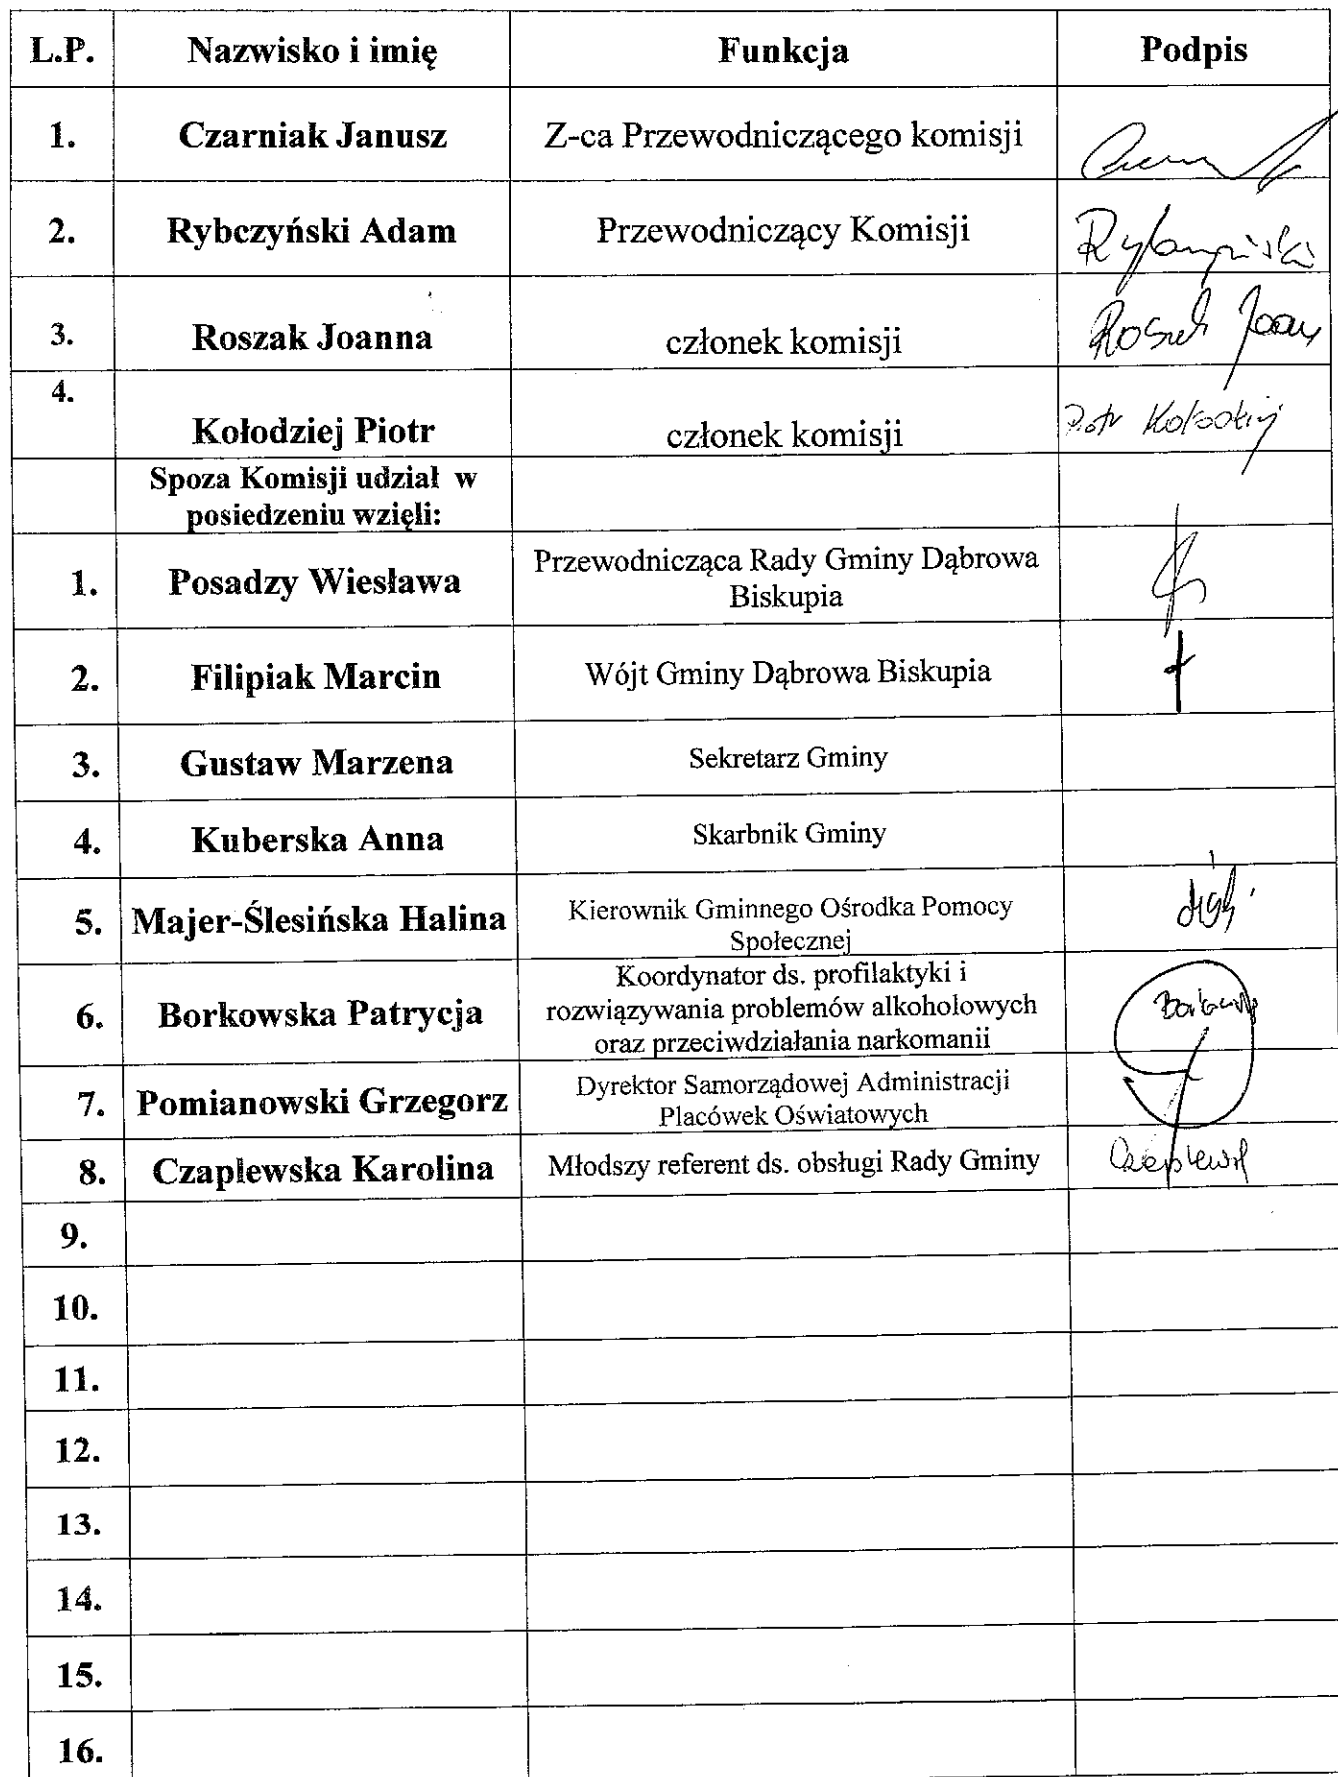 L.P. Nazwisko i imię Funkcja Podpis
1. Czarniak Janusz Z-ca Przewodniczącego komisji
2. Rybczyński Adam Przewodniczący Komisji Rybczyński
3. Roszak Joanna członek komisji
4.
Kołodziej Piotr członek komisji Piotr Kołodziej
Spoza Komisji udział w
posiedzeniu wzięli:
1. Posadzy Wiesława Przewodnicząca Rady Gminy Dąbrowa
Biskupia
2. Filipiak Marcin Wójt Gminy Dąbrowa Biskupia
3. Gustaw Marzena Sekretarz Gminy
4. Kuberska Anna Skarbnik Gminy
5. Majer-Ślesińska Halina Kierownik Gminnego Ośrodka Pomocy
Społecznej
Koordynator ds. profilaktyki i
6. Borkowska Patrycja rozwiązywania problemów alkoholowych
oraz przeciwdziałania narkomanii
7. Pomianowski Grzegorz Dyrektor Samorządowej Administracji
Placówek Oświatowych
8. Czaplewska Karolina Młodszy referent ds. obsługi Rady Gminy
9.
10.
11.
12.
13.
14.
15.
16.